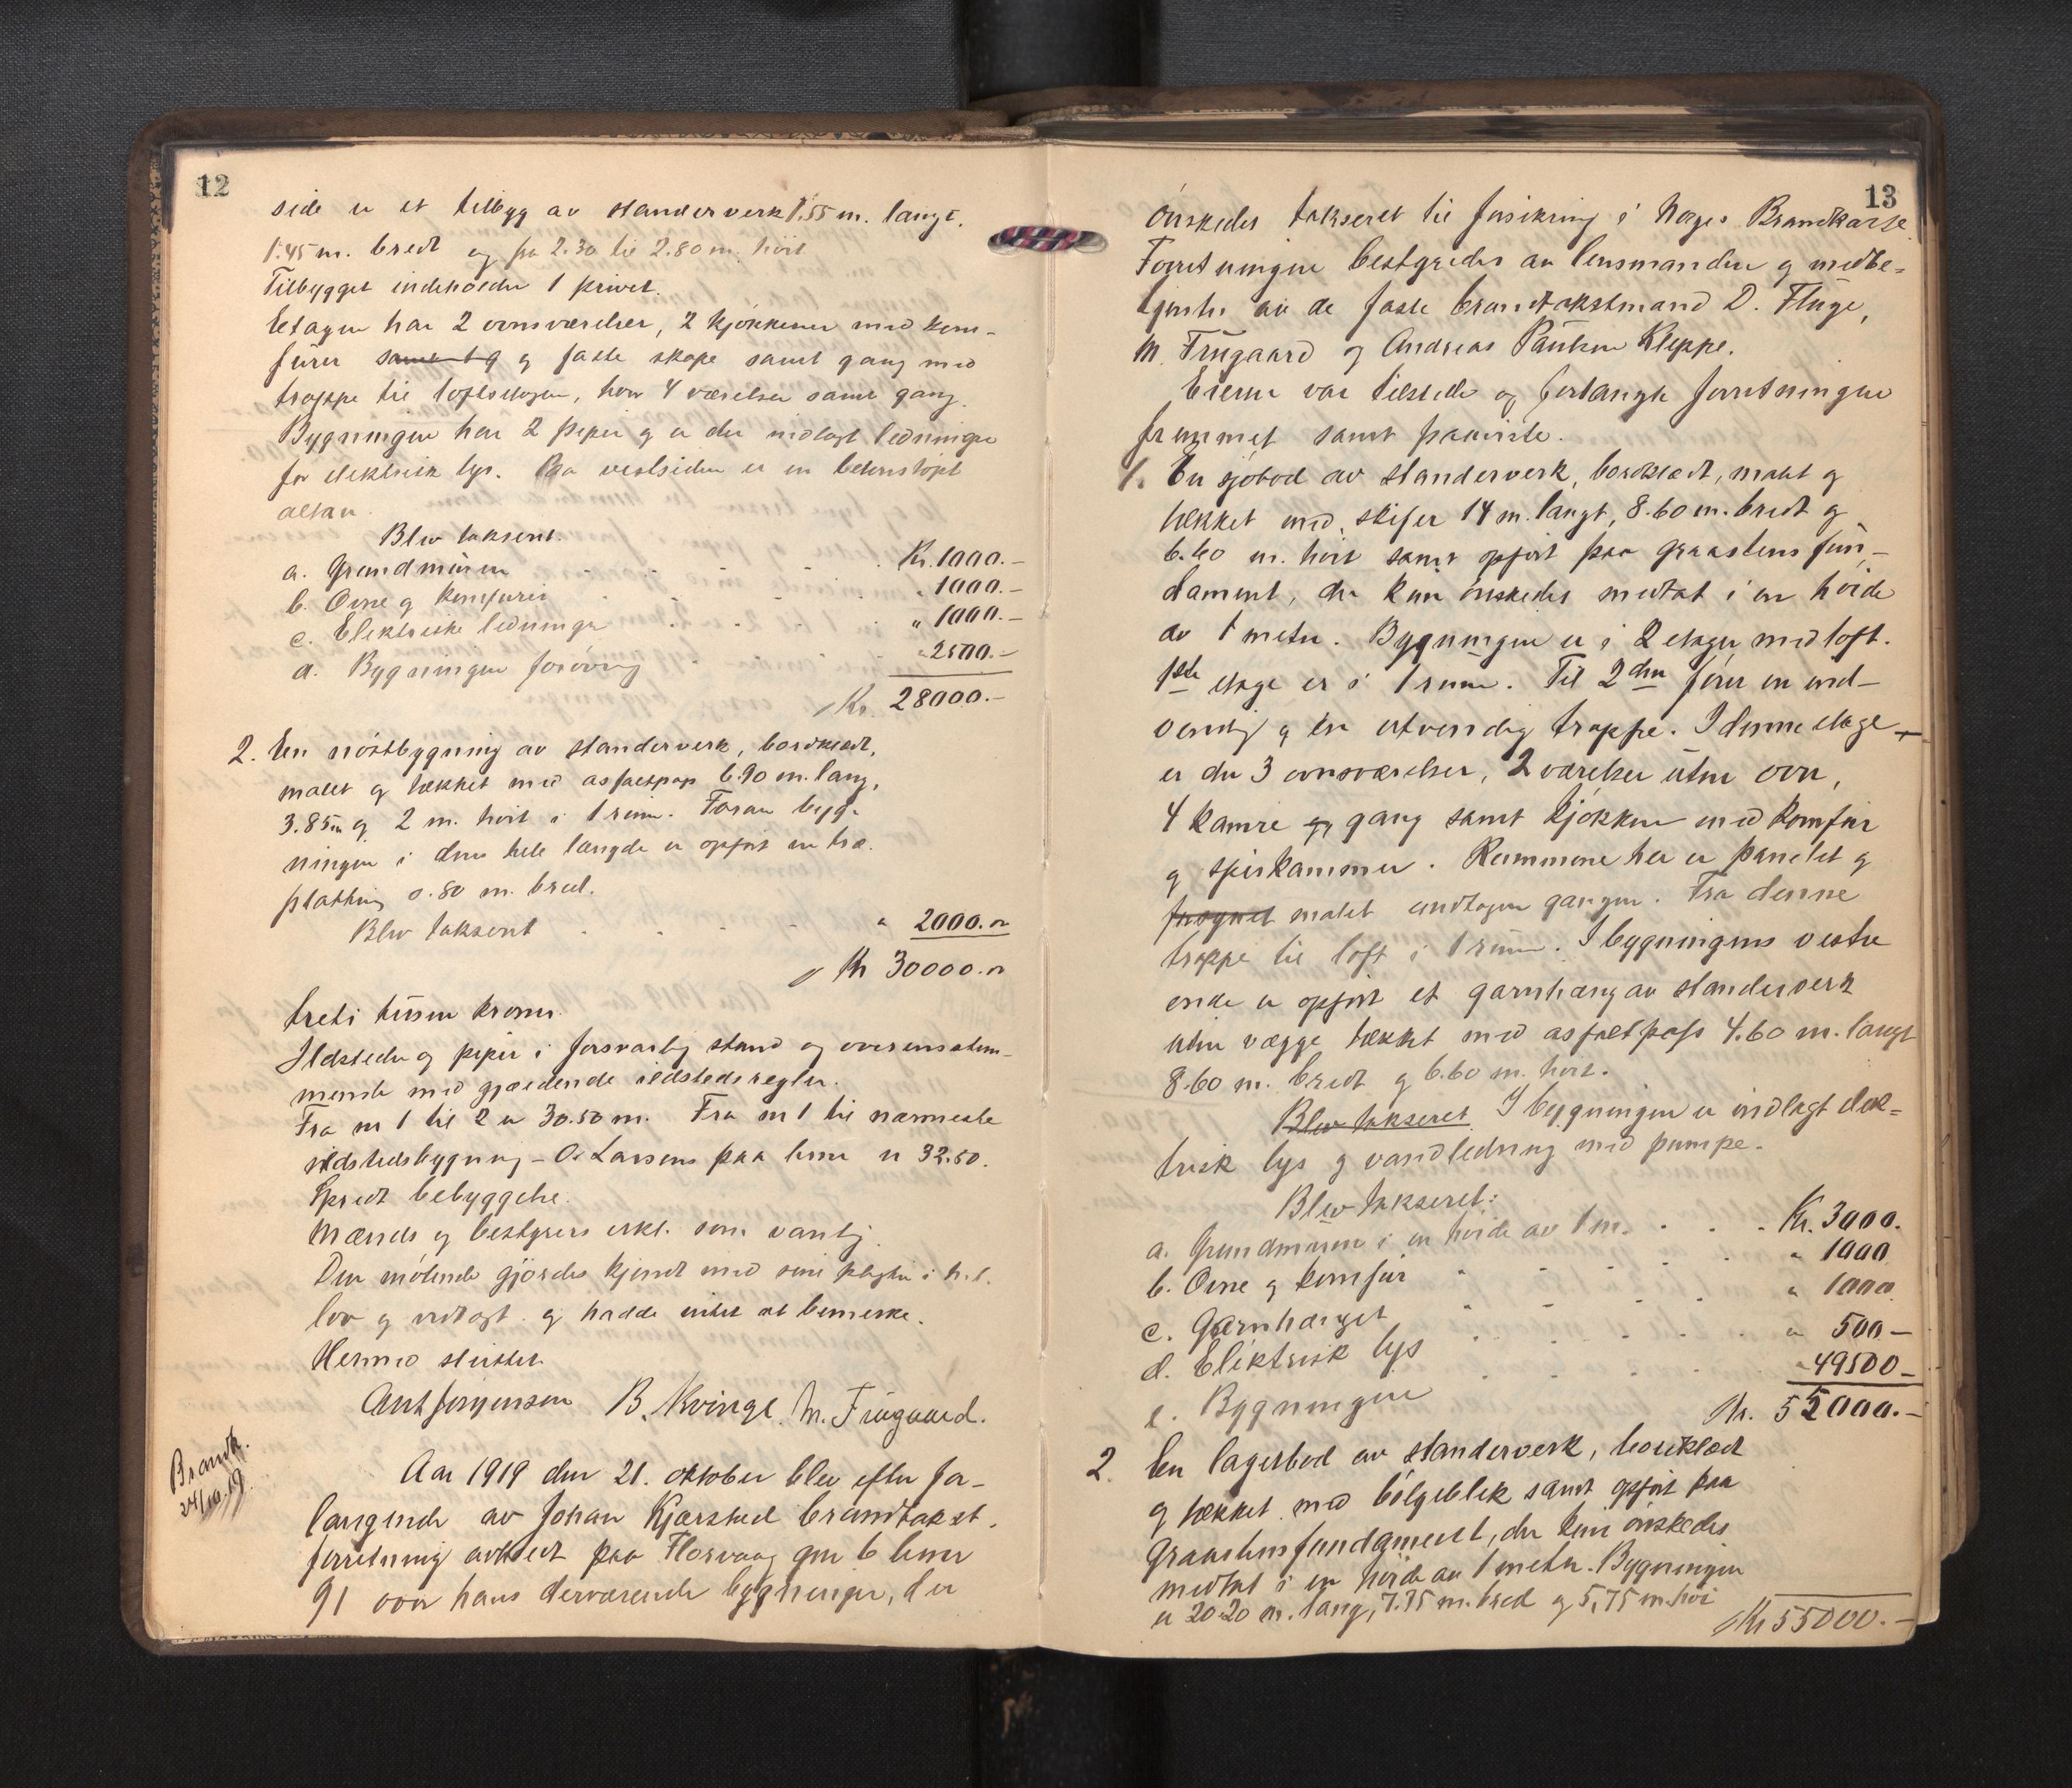 12
side er et tilbygg av standerverk 1.55 m. langt,
1.45 m. bredt og fra 2.30 til 2.80 m. höit
Tilbygget indeholder 1 privet.
Etagen har 2 ovnsværelser, 2 kjökkener med kom-
fürer samt g og faste skape samt gang med
trappe til loftsetagen, hvor 4 værelser samt gang.
Bygningen har 2 piper og er der indlagt ledninger
for elektrisk lys. Paa vestsiden er en betonstöpt
altan.
Blev taksert.
a. Grundmüren Kr. 1000.-
b. Ovne og komfurer " 1000.-
c. Elektriske ledninger " 1000.-
d. Bygningen forövrig " 2500.-
Kr. 28000.-
2. En nöstbygning av standerverk, bordklædt,
malet og tækket med asfaltpap 6.90 m. lang,
3.85 m og 2 m. höit i 1 rüm. Foran byg-
ningen i dens hele længde er opfört en træ-
platting 0.80 m. bred.
Blev taksert " 2000.-
Kr 30000.-
treti tüsen kroner.
Ildsteder og piper i forsvarlig stand og overensstem-
mende med gjældende ildstedsregler.
Fra nr 1 til 2 er 30.50 m. Fra nr 1 til nærmeste
ildstedsbygning - O. Larsens paa leina er 32.50.
Spredt bebyggelse.
Mænds og bestyrers erkl. som vanlig.
Den mötende gjordes kjendt med sine plagter i h.t.
lov og vedtagt og hadde intet at bemerke.
Hermed sluttet
Ant Jörgensen B. Kvinge. M. Früguard.
Brandk.
24/10.19.
Aar 1919 den 21. oktober blev efter for-
langende av Johan Kjærstad brandtakst-
forretning avholdt paa Florvaag gnr 6 bnr
91 over hans derværende bygninger, der
13
önskedes takseret til forsikring i Norges Brandkasse.
Forretningen bestyredes av lensmanden og medbe-
tjentes av de faste brandtakstmænd D. Flüge,
M. Frügaard og Andreas Paülsen Kleppe.
Eieren var tilstede og forlangte forretningen
fremmet samt paaviste.
1. En sjöbod av standerverk, bordklædt, malet og
tækket med skifer 14 m. langt, 8.60 m. bredt og
6.60 m. höit samt opfört paa graastens fün-
dament, der kün önskedes medtat i en höide
av 1 meter. Bygningen er i 2 etager med loft.
1ste etage er i 1 rüm. Til 2den förer en ind-
vendig og en utvendig trappe. I denne etage
er der 3 ovnsværelser, 2 værelser üten ovn,
4 kamre og gang samt kjökken med komfür
og spiskammer. Rummene her er panelet og
malet undtagen gangen. Fra denne
trappe til loft i 1 rüm. I bygningens vestre
ende er opfört et garnhæng av standerverk
uten vægge tækket med asfaltpap 4.60 m. langt
8.60 m. bredt og 6.60 m. höit.
Blev takseret I bygningen er indlagt elek-
trisk lys og vandledning med pumpe.
Blev takseret:
a. Grundmüren i en höide av 1 m. Kr. 3000.
b. Ovne og komfür " 1000
c. Garnhænget " 1000
d. Elektrisk lys " 500 -
e. Bygningen " 49500 -
Kr. 55000.-
2. En lagerbod av standerverk, bordklædt
og tækket med bölgeblik samt opfört paa
graastensfundament, der kün önskedes
medtat i en höide av 1 meter. Bygningen
er 20.20 m. lang, 7.75 m. bred og 5,75 m. höi
Kr 55000.-